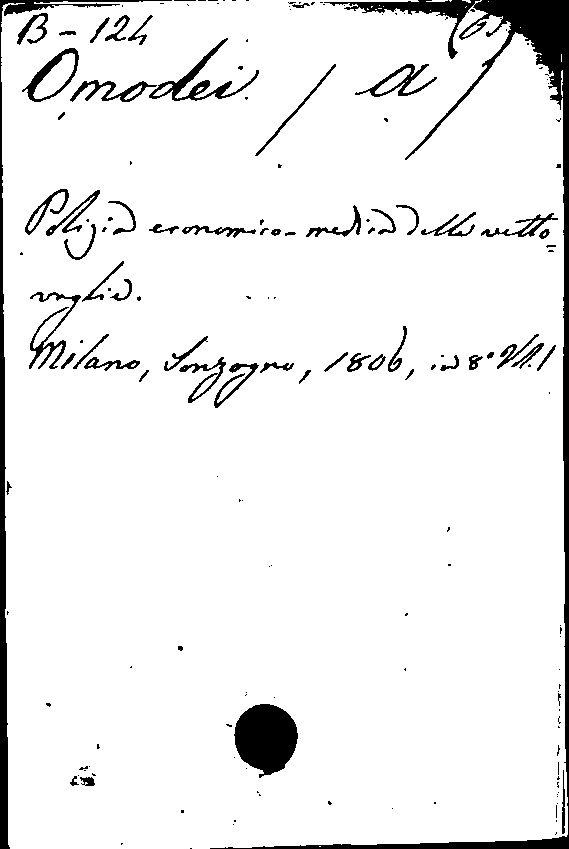 B - 124
Omodei / A /
Polizia economico-medica delle vetto=
vaglie.
Milano, Sonzogno, 1806, in 8° Vol. 1